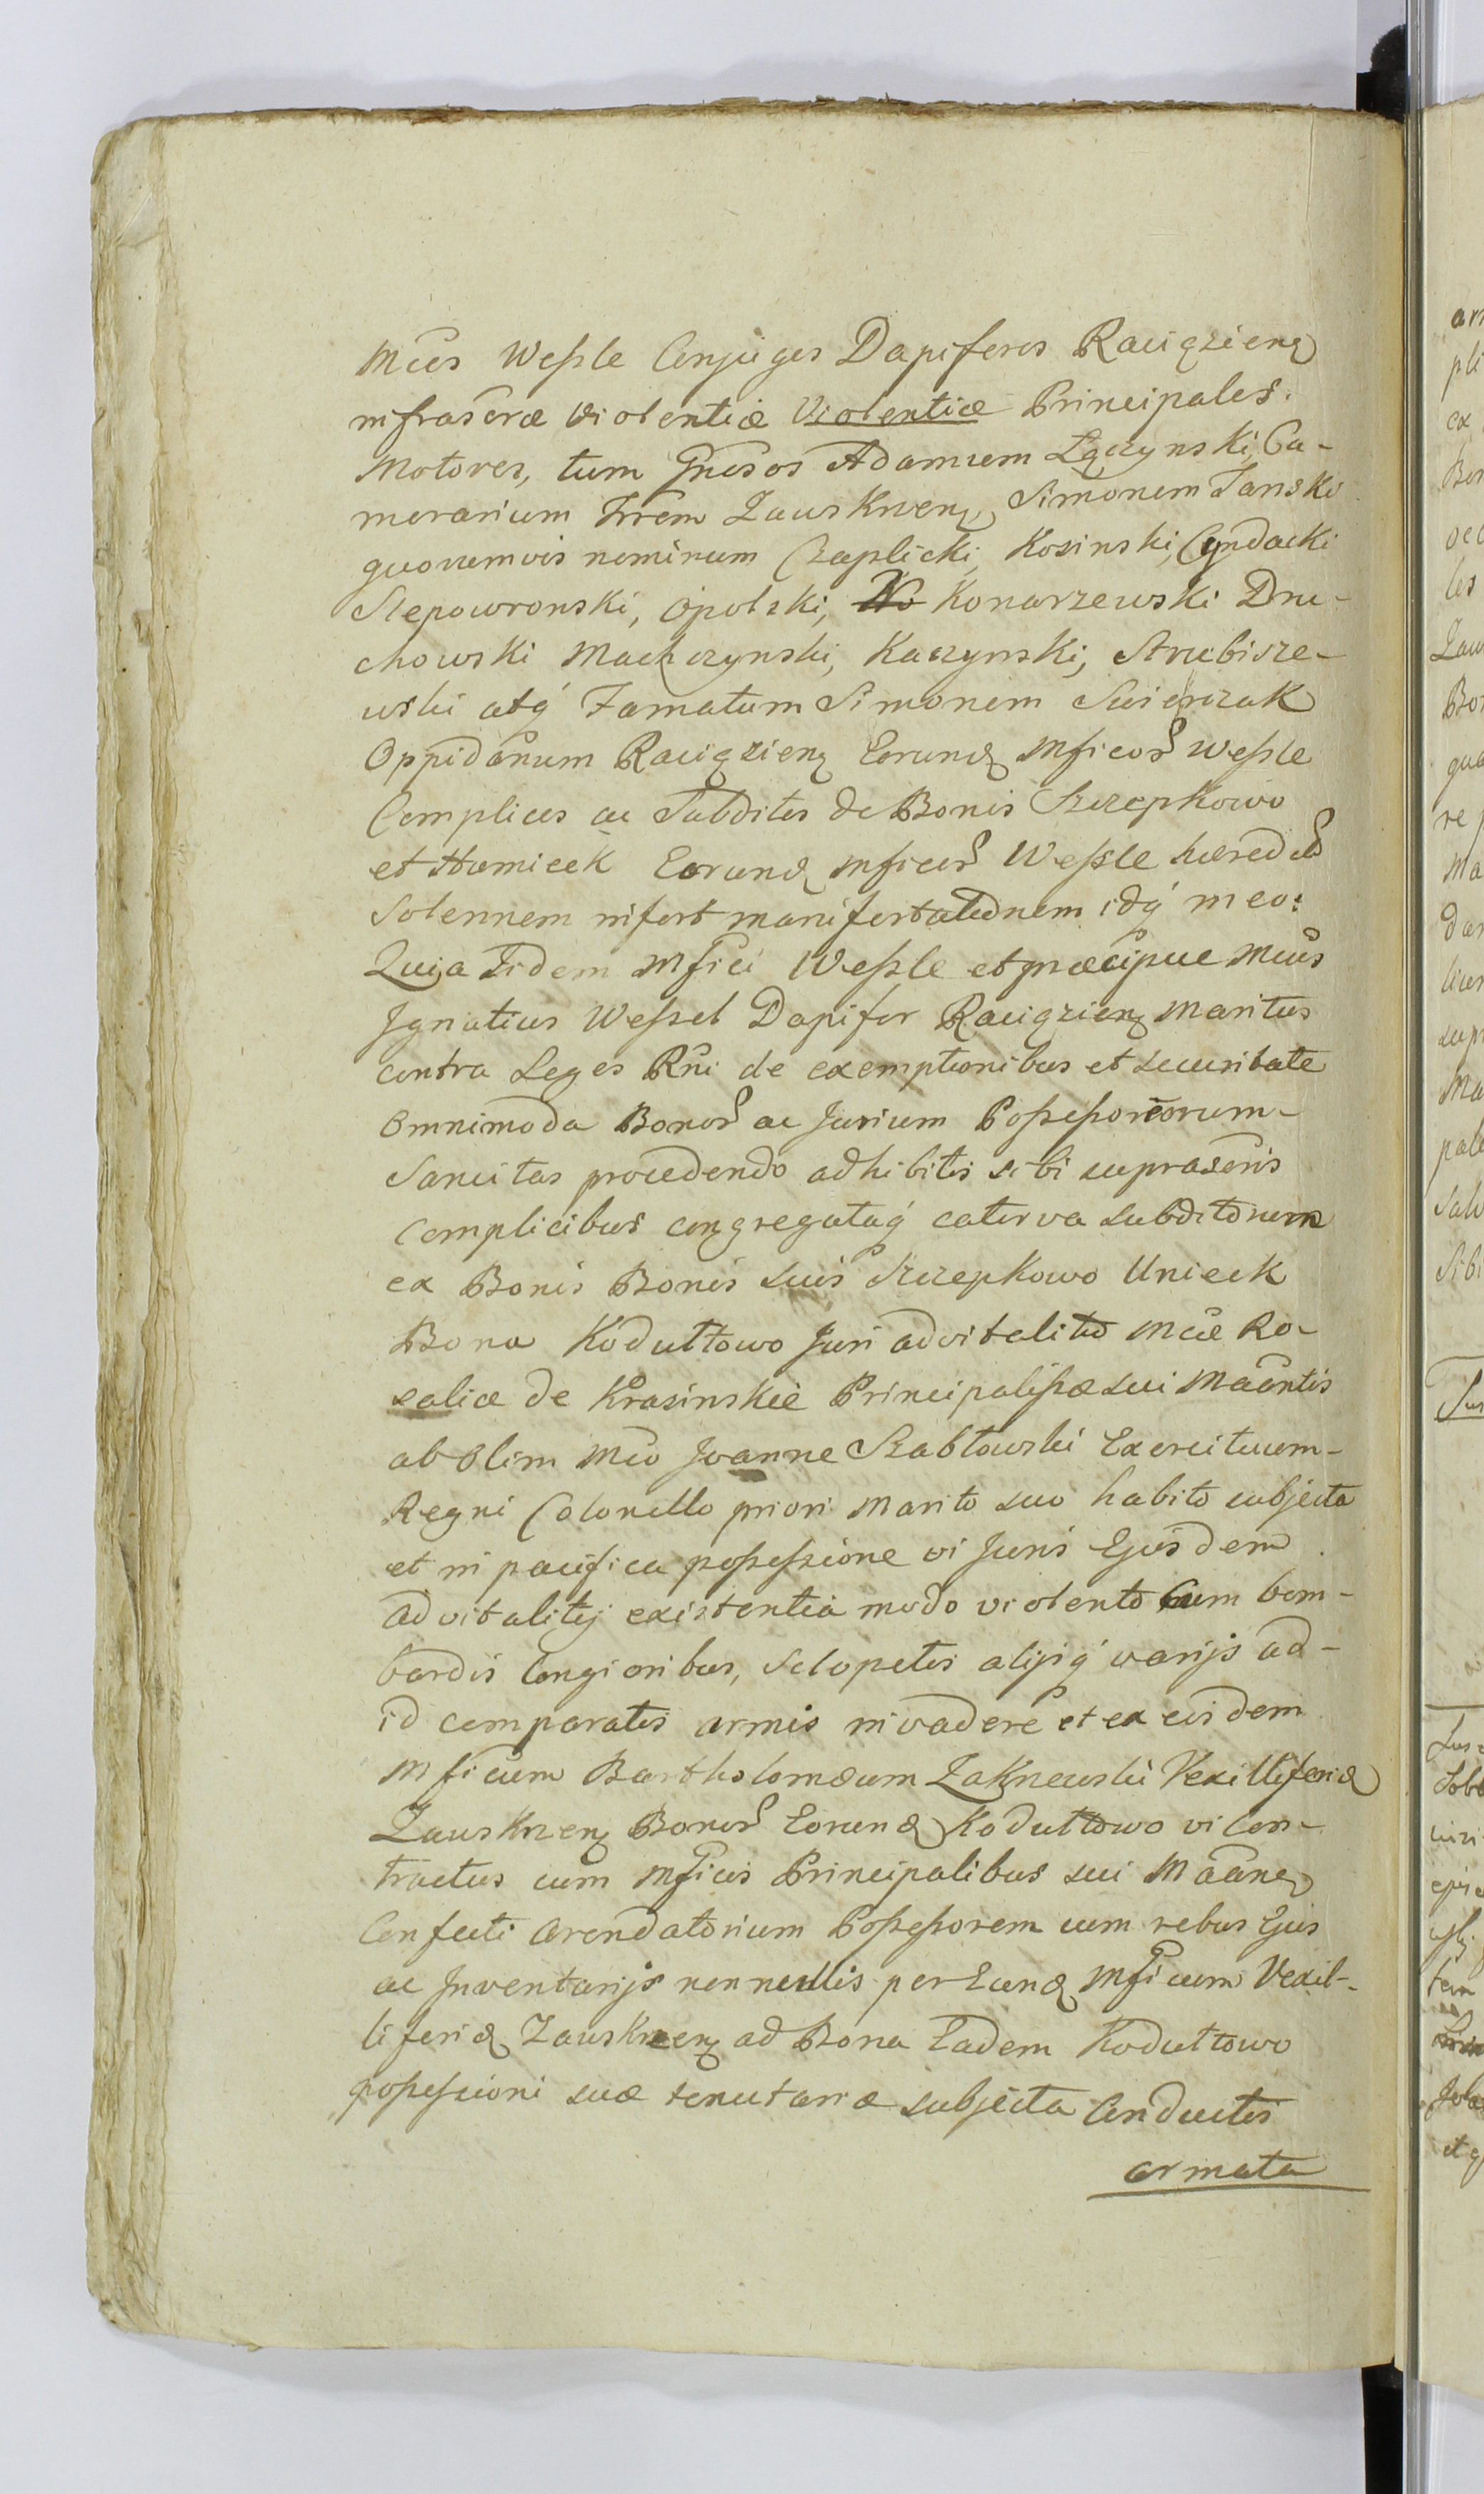 Mcos Wessle Conjuges Dapiferos Raciązienę
infrascræ violentiæ Violentiæ Principales.
Motores, tum Gnosos Adamum Łączynski, Ca-
merarium Trrem Zauskrnen, Simonem Janski
quorumvis nominum Czaplicki, Kosinski, Cyndacki
Slepowronski, Opolski, Ko Konarzewski Dru-
chowski Machczynski, Kaczynski, Strubisze-
wski atq́ Famatum Simonem Swierczak
Oppidanum Raciązienę Eorund Mficor Wessle
Complices ac Subditos de Bonis Szczepkowo
et Humicek Eorund Mficor Wessle hæred
Solennem infert manifestatõnem idq́ in eo:
Quia Iidem Mfici Wessle et præcipue Mcus
Ignatius Wessel Dapifer Raciązienę Maritus
contra Leges Rni de exemptionibus et securitate
omnimoda Bonor ac Jurium Possessoriorum-
Sancitas procedendo adhibitis sibi suprascris
Complicibus congregataq́ caterva subditorum
ex Bonis Bonis suis Szczepkowo Unieck
Bona Kodułtowo Juri advitalitio Mcæ Ro-
saliæ de Krasinskie Principalissæ sui Maantis
ab olim Mco Joanne Szabłowski Exercituum-
Regni Colonello priori Marito suo habito subjecta
et in pacifica possessione vi Juris Ejusdem
advitalitij existentia modo violento cum bom-
bardis longioribus, Sclopetis alijsq́ varijs ad-
id comparatis armis invadere et ex eisdem
Mficum Bartholomæum Zakrzewski Vexilliferid
Zauskrzenę Bonor Eorund Kodułtowo vi Con-
tractus cum Mficis Principalibus sui Maane
Confecti arendatorium Possessorem cum rebus Ejus
ac Inventarijs nonnullis per Eund Mficum Vexil-
liferid Zauskrzenę ad Bona Eadem Kodułtowo
possessioni suæ tenutariæ subjecta Conductis
armata